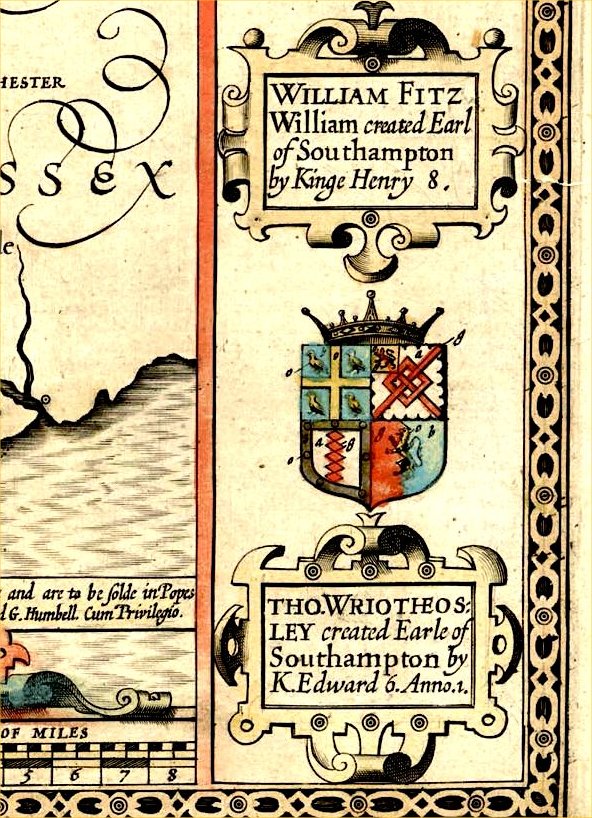 HESTER
SSEX
WILLIAM FITZ
William created Earl
of Southampton
by Kinge Henry 8.
le
o
o
a
g
a
g
o
g
o
b
THO. WRIOTHEOS:
LEY created Earle of
Southampton by
K. Edward 6. Anno. 1.
and are to be solde in Popes
d G. Humbell. Cum Privilegio.
OF MILES
5 6 7 8